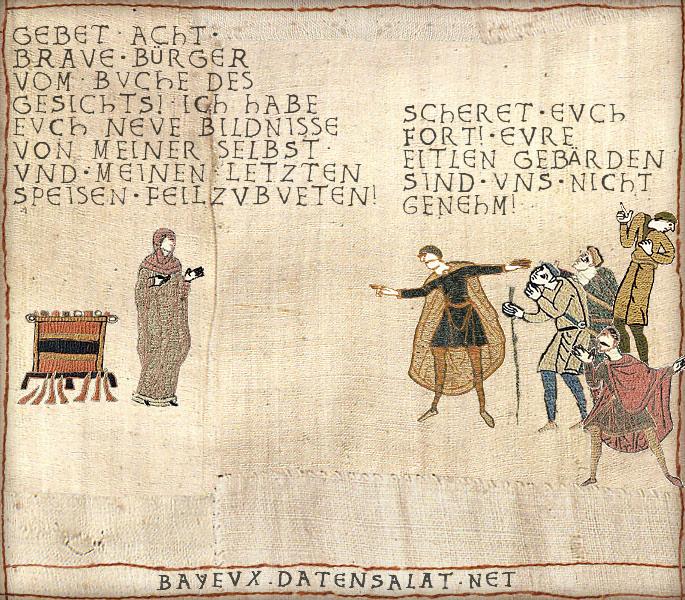 GEBET · ACHT ·
BRAVE · BÜRGER
VOM · BVCHE DES
GESICHTS! · ICH HABE
EVCH NEVE BILDNISSE
VON MEINER SELBST ·
VND · MEINEN LETZTEN
SPEISEN · FEILZVBVETEN!
SCHERET · EVCH
FORT! · EVRE
EITLEN GEBÄRDEN
SIND · VNS · NICHT
GENEHM!
BAYEVX.DATENSALAT.NET